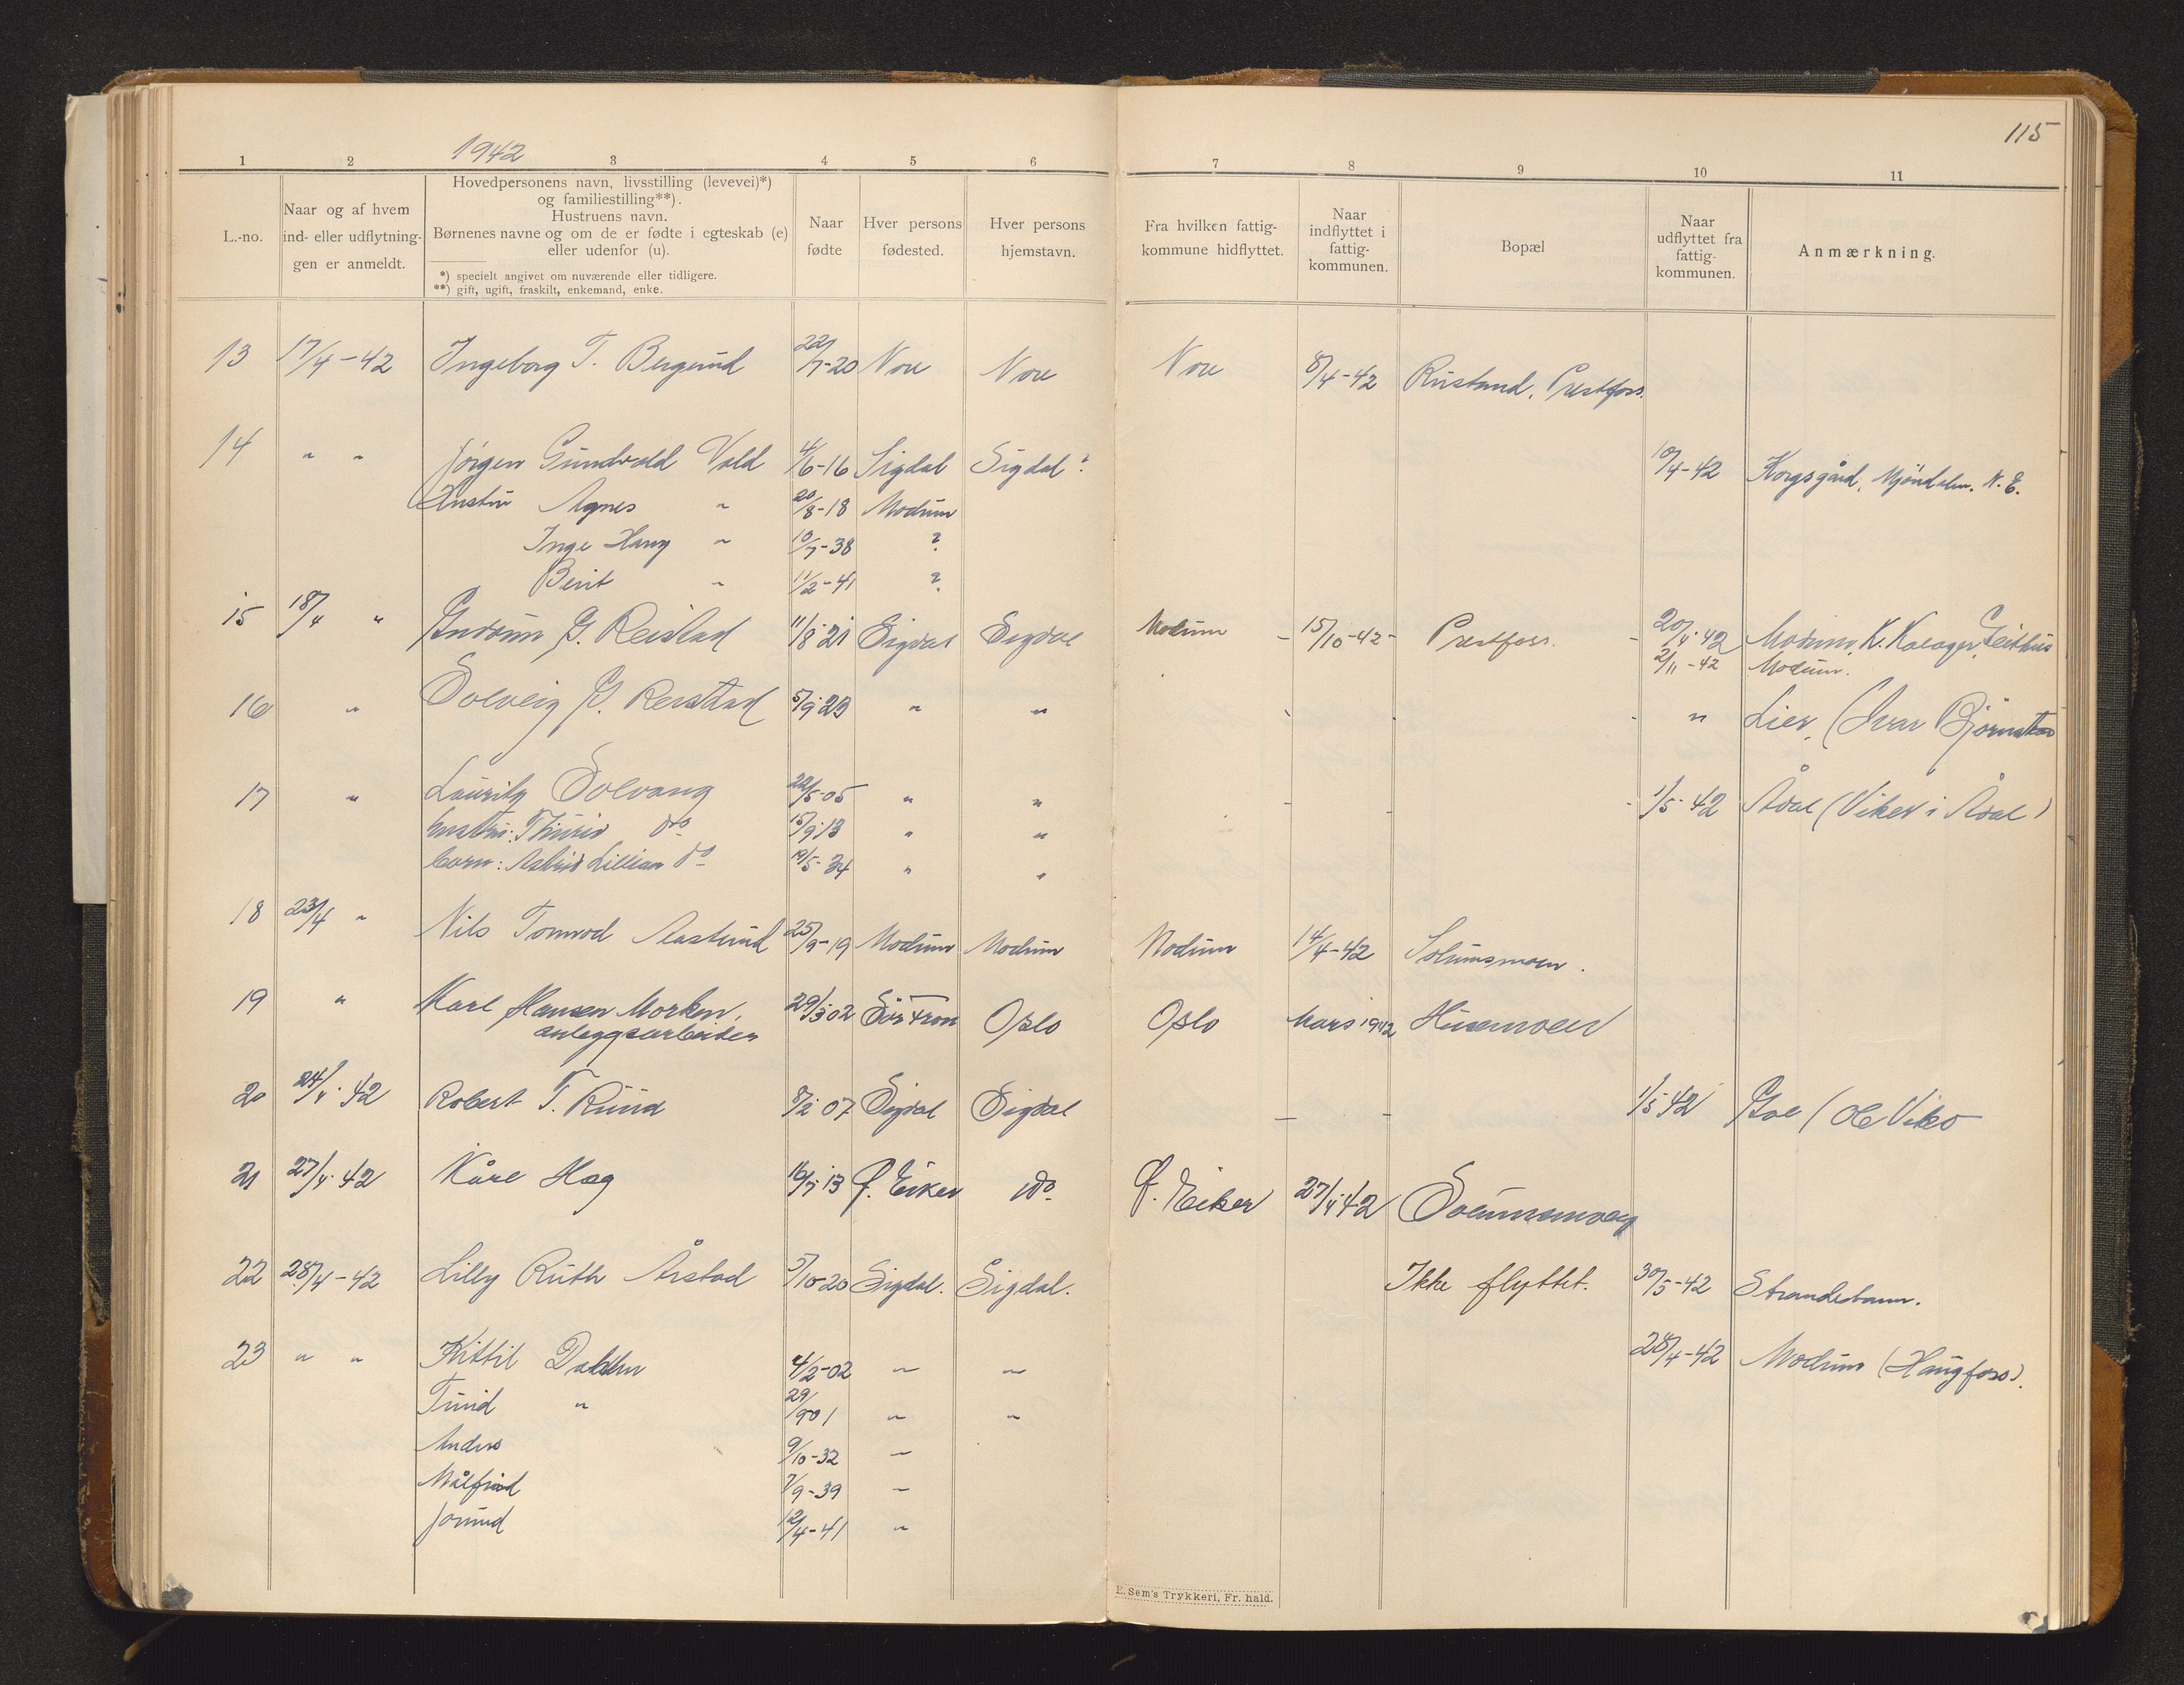 115
1942
1 2 3 4 5 6 7 8 9 10 11
L.-no.
Naar og af hvem
ind- eller udflytnin-
gen er anmeldt.
Hovedpersonens navn, livsstilling (levevei)*)
og familiestilling**).
Hustruens navn.
Børnenes navne og om de er fødte i egteskab (e)
eller udenfor (u).
*) specielt angivet om nuværende eller tidligere.
**) gift, ugift, fraskilt, enkemand, enke.
Naar
fødte
Hver persons
fødested.
Hver persons
hjemstavn.
Fra hvilken fattig-
kommune hidflyttet.
Naar
indflyttet i
fattig-
kommunen.
Bopæl
Naar
udflyttet fra
fattig-
kommunen.
Anmærkning.
13 17/4-42 Ingeborg T. Bergerud 22/7-20 Nore Nore Nore 8/4-42 Rustand, Prestfoss.
14 " " Jørgen Gundvald Vald 4/6-16 Sigdal Sigdal? 10/4-42 Korgsgård, Mjøndalen. N. E.
Hustru Agnes " 20/8-18 Modum
Inge Harry " 10/7-38 ?
Berit " 11/2-41 ?
15 18/4 " Gudrun G. Reistad 11/8-21 Sigdal Sigdal Modum - 15/10-42 - Prestfoss. - 20/4-42 Modum, K. Kalager, Geithus
2/11-42 Modum.
16 " Solveig G. Reistad 5/9 23 " " " Lier, (Ivar Bjørnstad
17 " Lauritz Solvang 22/5-05 " " - - - 1/5-42 Ådal (Viker i Ådal)
hustru: Thurid do 15/9-13 " "
barn: Astrid Lillian do 19/5-34 " "
18 23/4 " Nils Tormod Aasterud 25/9-19 Modum Modum Modum 14/4-42 Solumsmoen.
19 " Karl Hansen Morken, 29/3-02 Sør Fron Oslo Oslo Mars 1942 Husemoen
anleggsarbeider
20 24/4-42 Robert T. Ruud 8/2 07 Sigdal Sigdal - - 1/5-42 Gol (Ole Viko
21 27/4-42 Kåre Hag 16/7-13 Ø. Eiker do Ø. Eiker 27/4-42 Solumsmoen
22 28/4-42 Lilly Ruth Årstad 5/10-20 Sigdal. Sigdal. Ikke flyttet. 30/5-42 Strandebarm.
23 " " Kittil Dahlen 4/2-02 " " 28/4-42 Modum (Haugfoss).
Turid " 29/901 " "
Anders 9/10-32 "
Målfrid 7/9-39 "
Jorund 12/4-41 "
E. Sem's Trykkeri, Fr. hald.